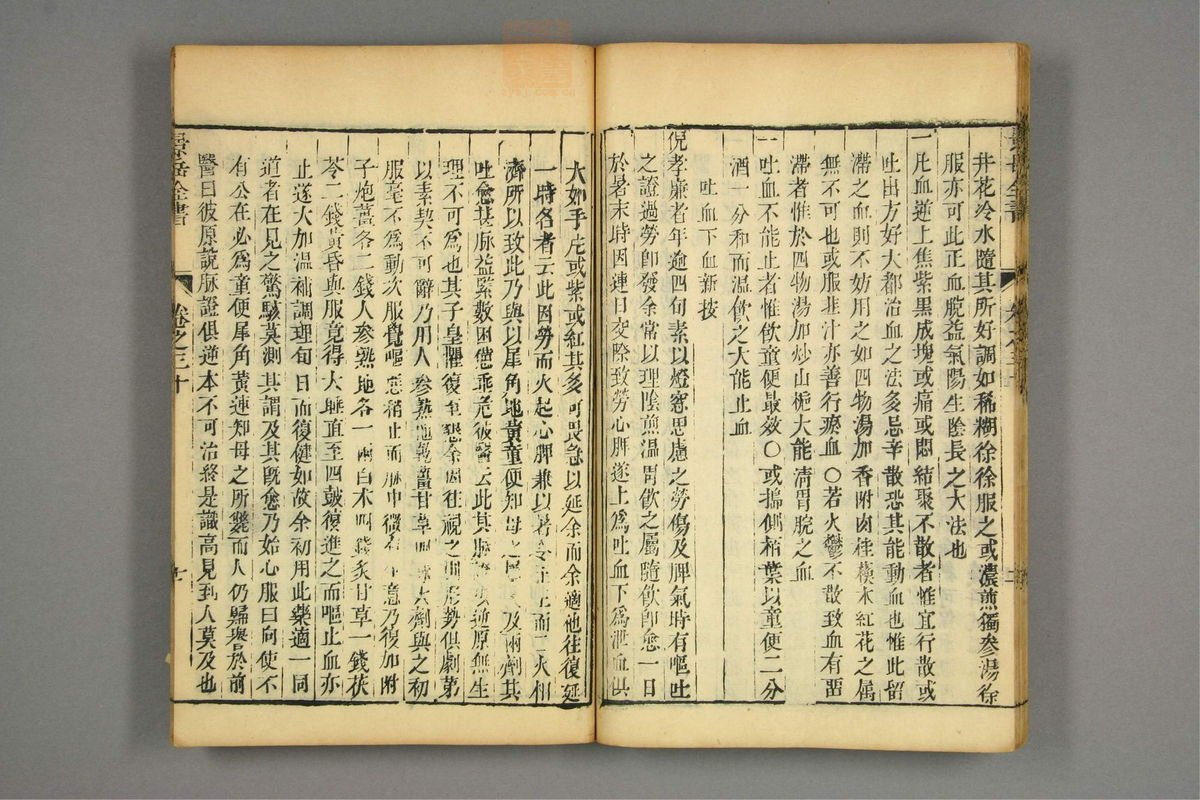 井花冷水隨其所好調如稀糊徐徐服之或濃煎獨參湯徐
服亦可此正血脫益氣陽生陰長之大法也
一凡血逆上焦紫黑成塊或痛或悶結聚不散者惟宜行散或
吐出方好大都治血之法多忌辛散恐其能動血也惟此留
滯之血則不妨用之如四物湯加香附肉桂蘇木紅花之屬
無不可也或服韭汁亦善行瘀血○若火鬱不散致血有留
滯者惟於四物湯加炒山梔大能清胃脘之血
一吐血不能止者惟飲童便最效○或搗側栢葉以童便二分
酒一分和而温飲之大能止血
吐血下血新按
倪孝廉者年逾四旬素以燈窓思慮之勞傷及脾氣時有嘔吐
之證過勞即發余常以理陰煎温胃飲之屬隨飲即愈一日
於暑末時因連日交際致勞心脾遂上為吐血下為泄血俱
大如手片或紫或紅其多可畏急以延余而余適他往復延
一時名者云此因勞而火起心脾兼以暑令正王而二火相
濟所以致此乃與以犀角地黄童便知母之屬 及兩劑其
吐愈甚脉益緊數困憊垂危彼醫云此其脉 逆原無生
理不可為也其子皇懼復至懇余因往視之則形勢俱劇第
以素契不可辭乃用人參熟地乾薑甘草四味大劑與之初
服毫不為動次服覺嘔惡稍止而脉中微有生意乃復加附
子炮薑各二錢人參熟地各一兩白木四錢炙甘草一錢茯
苓二錢黄昏與服竟得大睡直至四皷復進之而嘔止血亦
止遂大加温補調理旬日而復健如故余初用此藥適一同
道者在見之驚駭莫測其謂及其既愈乃始心服曰向使不
有公在必為童便犀角黄連知母之所斃而人仍歸譽於前
醫曰彼原說脉證俱逆本不可治終是識高見到人莫及也
景岳全書
卷之三十